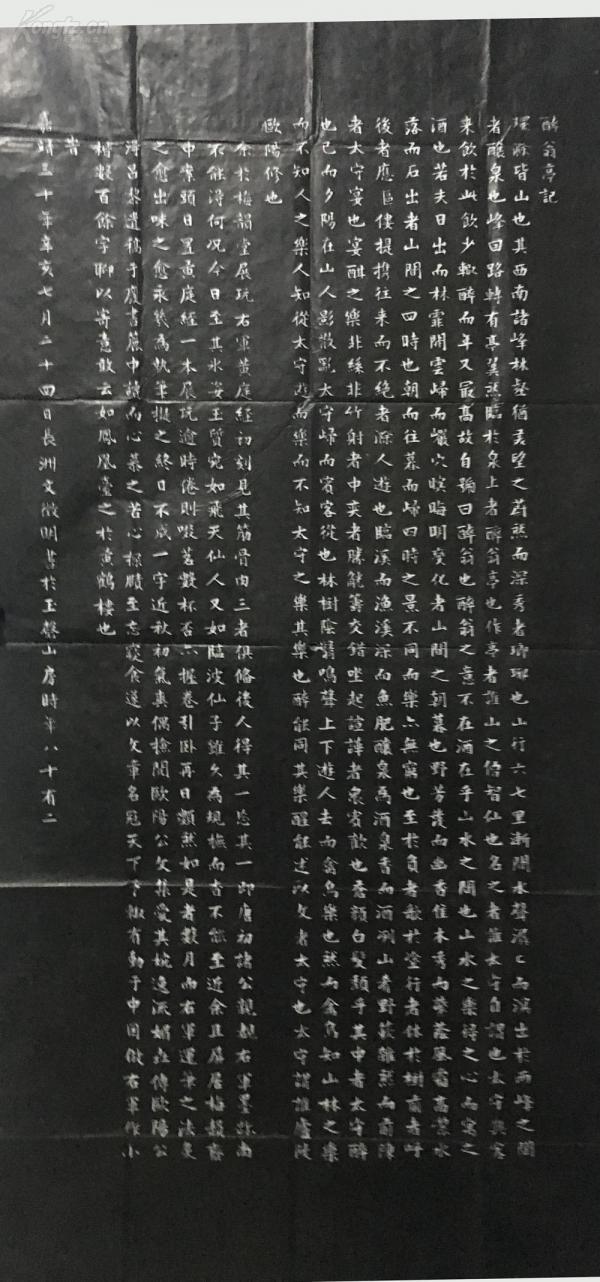 醉翁亭記
環滁皆山也其西南諸峰林壑猶美望之蔚然而深秀者瑯琊也山行六七里漸聞水聲潺〻而瀉出於兩峰之間
者釀泉也峰回路轉有亭翼然臨於泉上者醉翁亭也作亭者誰山之僧智仙也名之者誰太守自謂也太守與客
來飲於此飲少輒醉而年又最高故自號曰醉翁也醉翁之意不在酒在乎山水之間也山水之樂得之心而寓之
酒也若夫日出而林霏開雲歸而巖穴暝晦明變化者山間之朝暮也野芳發而幽香佳木秀而繁蔭風霜高潔水
落而石出者山間之四時也朝而往暮而歸四時之景不同而樂亦無窮也至於負者歌於塗行者休於樹前者呼
後者應傴僂提攜往來而不絕者滁人遊也臨溪而漁溪深而魚肥釀泉為酒泉香而酒洌山肴野蔌雜然而前陳
者太守宴也宴酣之樂非絲非竹射者中奕者勝觥籌交錯坐起諠譁者眾賓歡也蒼顏白髮頹乎其中者太守醉
也已而夕陽在山人影散亂太守歸而賓客從也林樹陰翳鳴聲上下遊人去而禽鳥樂也然而禽鳥知山林之樂
而不知人之樂人知從太守遊而樂而不知太守之樂其樂也醉能同其樂醒能述以文者太守也太守謂誰廬陵
歐陽修也
余於梅韻堂展玩右軍黃庭經初刻見其筋骨肉三者俱備後人得其一忘其一即唐初諸公親覩右軍墨跡尚
不能得何況今日至其冰姿玉質宛如飛天仙人又如臨波仙子雖久為規橅而杳不能至近余且屏居梅韻齋
中案頭日置黃庭經一本展玩逾時倦則啜茗數杯否亦握卷引臥再日頹然如是者數月而右軍運筆之法覺
之愈出味之愈永幾為執筆擬之終日不成一字近秋初氣爽偶檢閱歐陽公文集愛其婉逸流媚世傳歐陽公
得昌黎遺稿于廢書簏中讀而心慕之苦心探賾至忘寢食遂以文章名冠天下予有動于中因倣右軍作小
楷數百餘字聊以寄意敢云如鳳凰臺之於黃鶴樓也
旹
嘉靖三十年辛亥七月二十四日長洲文徵明書於玉磬山房時年八十有二